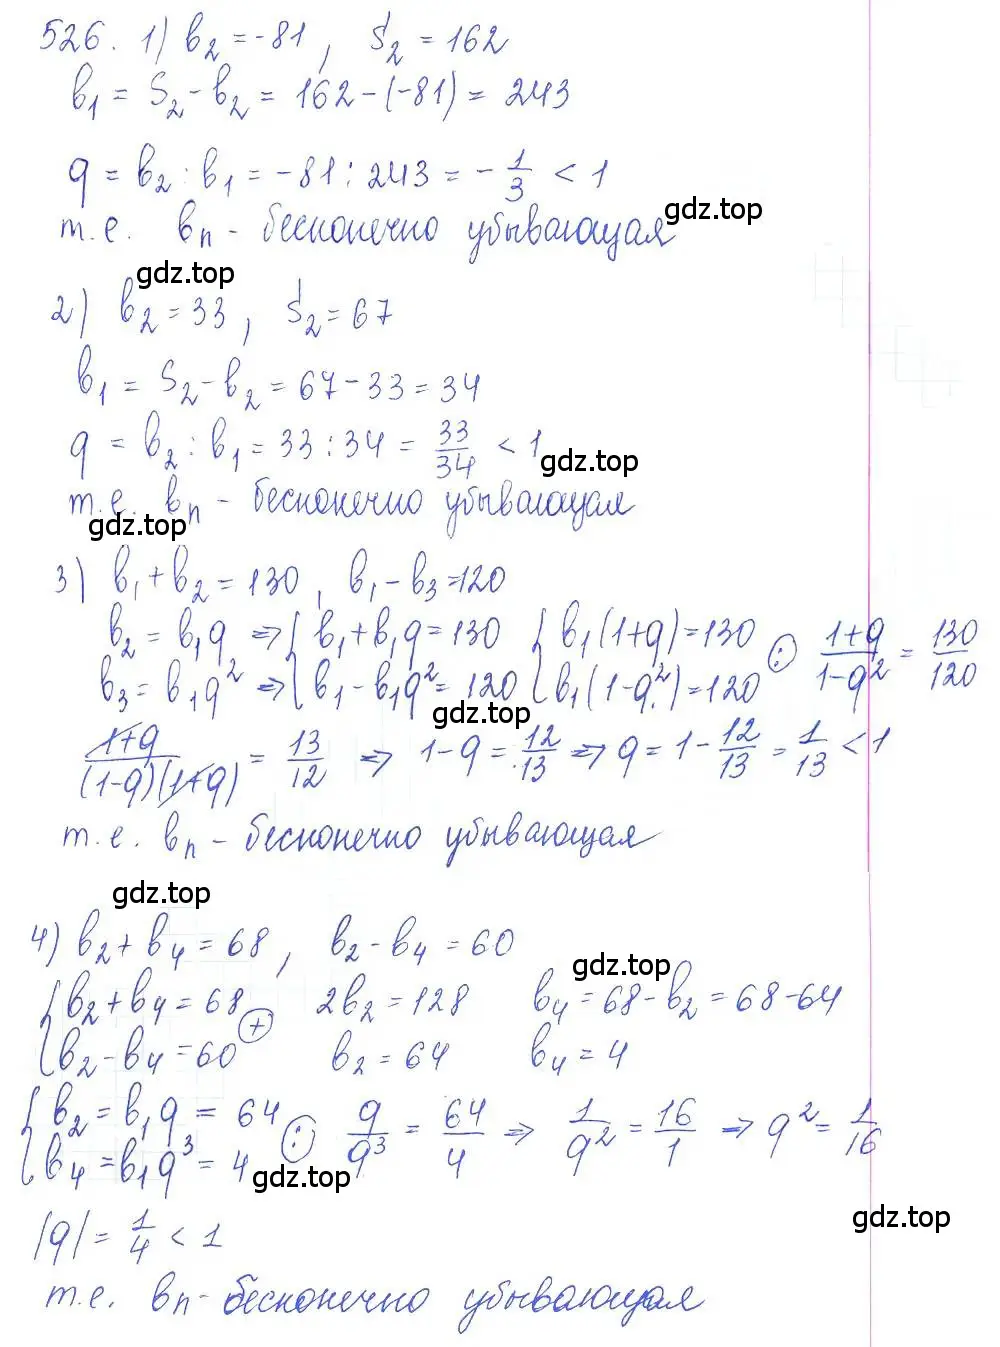 526. 1) b₂ = -81, S₂ = 162
b₁ = S₂ - b₂ = 162 - (-81) = 243
q = b₂ : b₁ = -81 : 243 = - 1/3 < 1
т.е. bₙ - бесконечно убывающая
gdz.top
gdz.top
2) b₂ = 33, S₂ = 67
b₁ = S₂ - b₂ = 67 - 33 = 34
q = b₂ : b₁ = 33 : 34 = 33/34 < 1
gdz.top
т.е. bₙ - бесконечно убывающая
gdz.top
3) b₁ + b₂ = 130, b₁ - b₃ = 120
b₂ = b₁q ⇒ { b₁ + b₁q = 130 { b₁(1+q) = 130 : (1+q)/(1-q²) = 130/120
b₃ = b₁q² ⇒ { b₁ - b₁q² = 120 { b₁(1-q²) = 120
gdz.top
(1+q)/((1-q)(1+q)) = 13/12 ⇒ 1 - q = 12/13 ⇒ q = 1 - 12/13 = 1/13 < 1
т.е. bₙ - бесконечно убывающая
gdz.top
4) b₂ + b₄ = 68, b₂ - b₄ = 60
gdz.top
{ b₂ + b₄ = 68 + 2b₂ = 128 b₄ = 68 - b₂ = 68 - 64
{ b₂ - b₄ = 60 b₂ = 64 b₄ = 4
{ b₂ = b₁q = 64 : q/q³ = 64/4 ⇒ 1/q² = 16/1 ⇒ q² = 1/16
{ b₄ = b₁q³ = 4
gdz.top
gdz.top
|q| = 1/4 < 1
т.е. bₙ - бесконечно убывающая